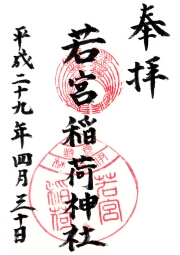 奉拝
若宮稲荷神社
平成二十九年四月三十日
若宮
稲荷